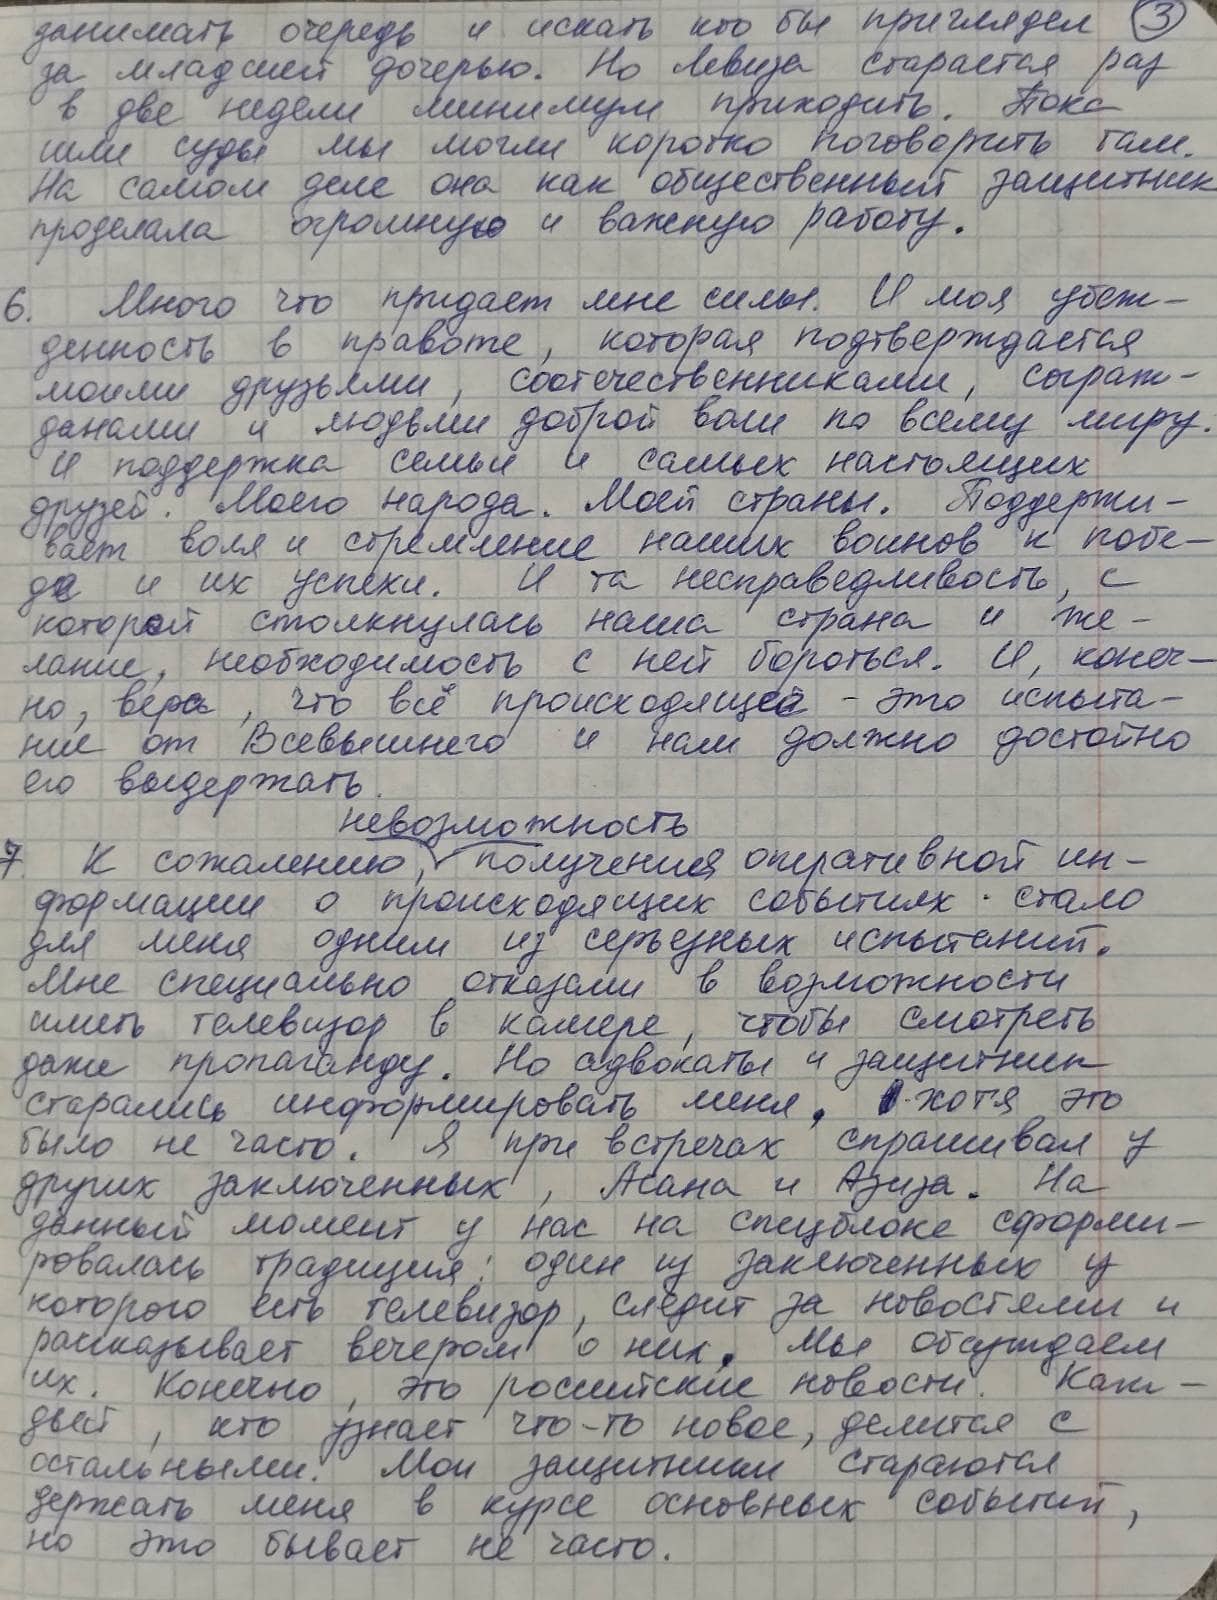 занимать очередь и искать кто бы приглядел ③
за младшей дочерью. Но Левиза старается раз
в две недели минимум приходить. Пока
шли суды мы могли коротко поговорить там.
На самом деле она как общественный защитник
проделала огромную и важную работу.
6. Много что придает мне силы. И моя убеж-
денность в правоте, которая подтверждается
моими друзьями, соотечественниками, сограж-
данами и людьми доброй воли по всему миру.
И поддержка семьи и самых настоящих
друзей. Моего народа. Моей страны. Поддержи-
вает воля и стремление наших воинов к побе-
де и их успехи. И та несправедливость, с
которой столкнулась наша страна и же-
лание, необходимость с ней бороться. И, конеч-
но, вера, что всё происходящее - это испыта-
ние от Всевышнего и нам должно достойно
его выдержать.
невозможность
7. К сожалению, получения оперативной ин-
формации о происходящих событиях стало
для меня одним из серьезных испытаний.
Мне специально отказали в возможности
иметь телевизор в камере, чтобы смотреть
даже пропаганду. Но адвокаты и защитник
старались информировать меня, хотя это
было не часто. Я при встречах спрашивал у
других заключенных, Асана и Азиза. На
данный момент у нас на спецблоке сформи-
ровалась традиция: один из заключенных у
которого есть телевизор, следит за новостями и
рассказывает вечером о них. Мы обсуждаем
их. Конечно, это российские новости. Каж-
дый, кто узнает что-то новое, делится с
остальными. Мои защитники стараются
держать меня в курсе основных событий,
но это бывает не часто.